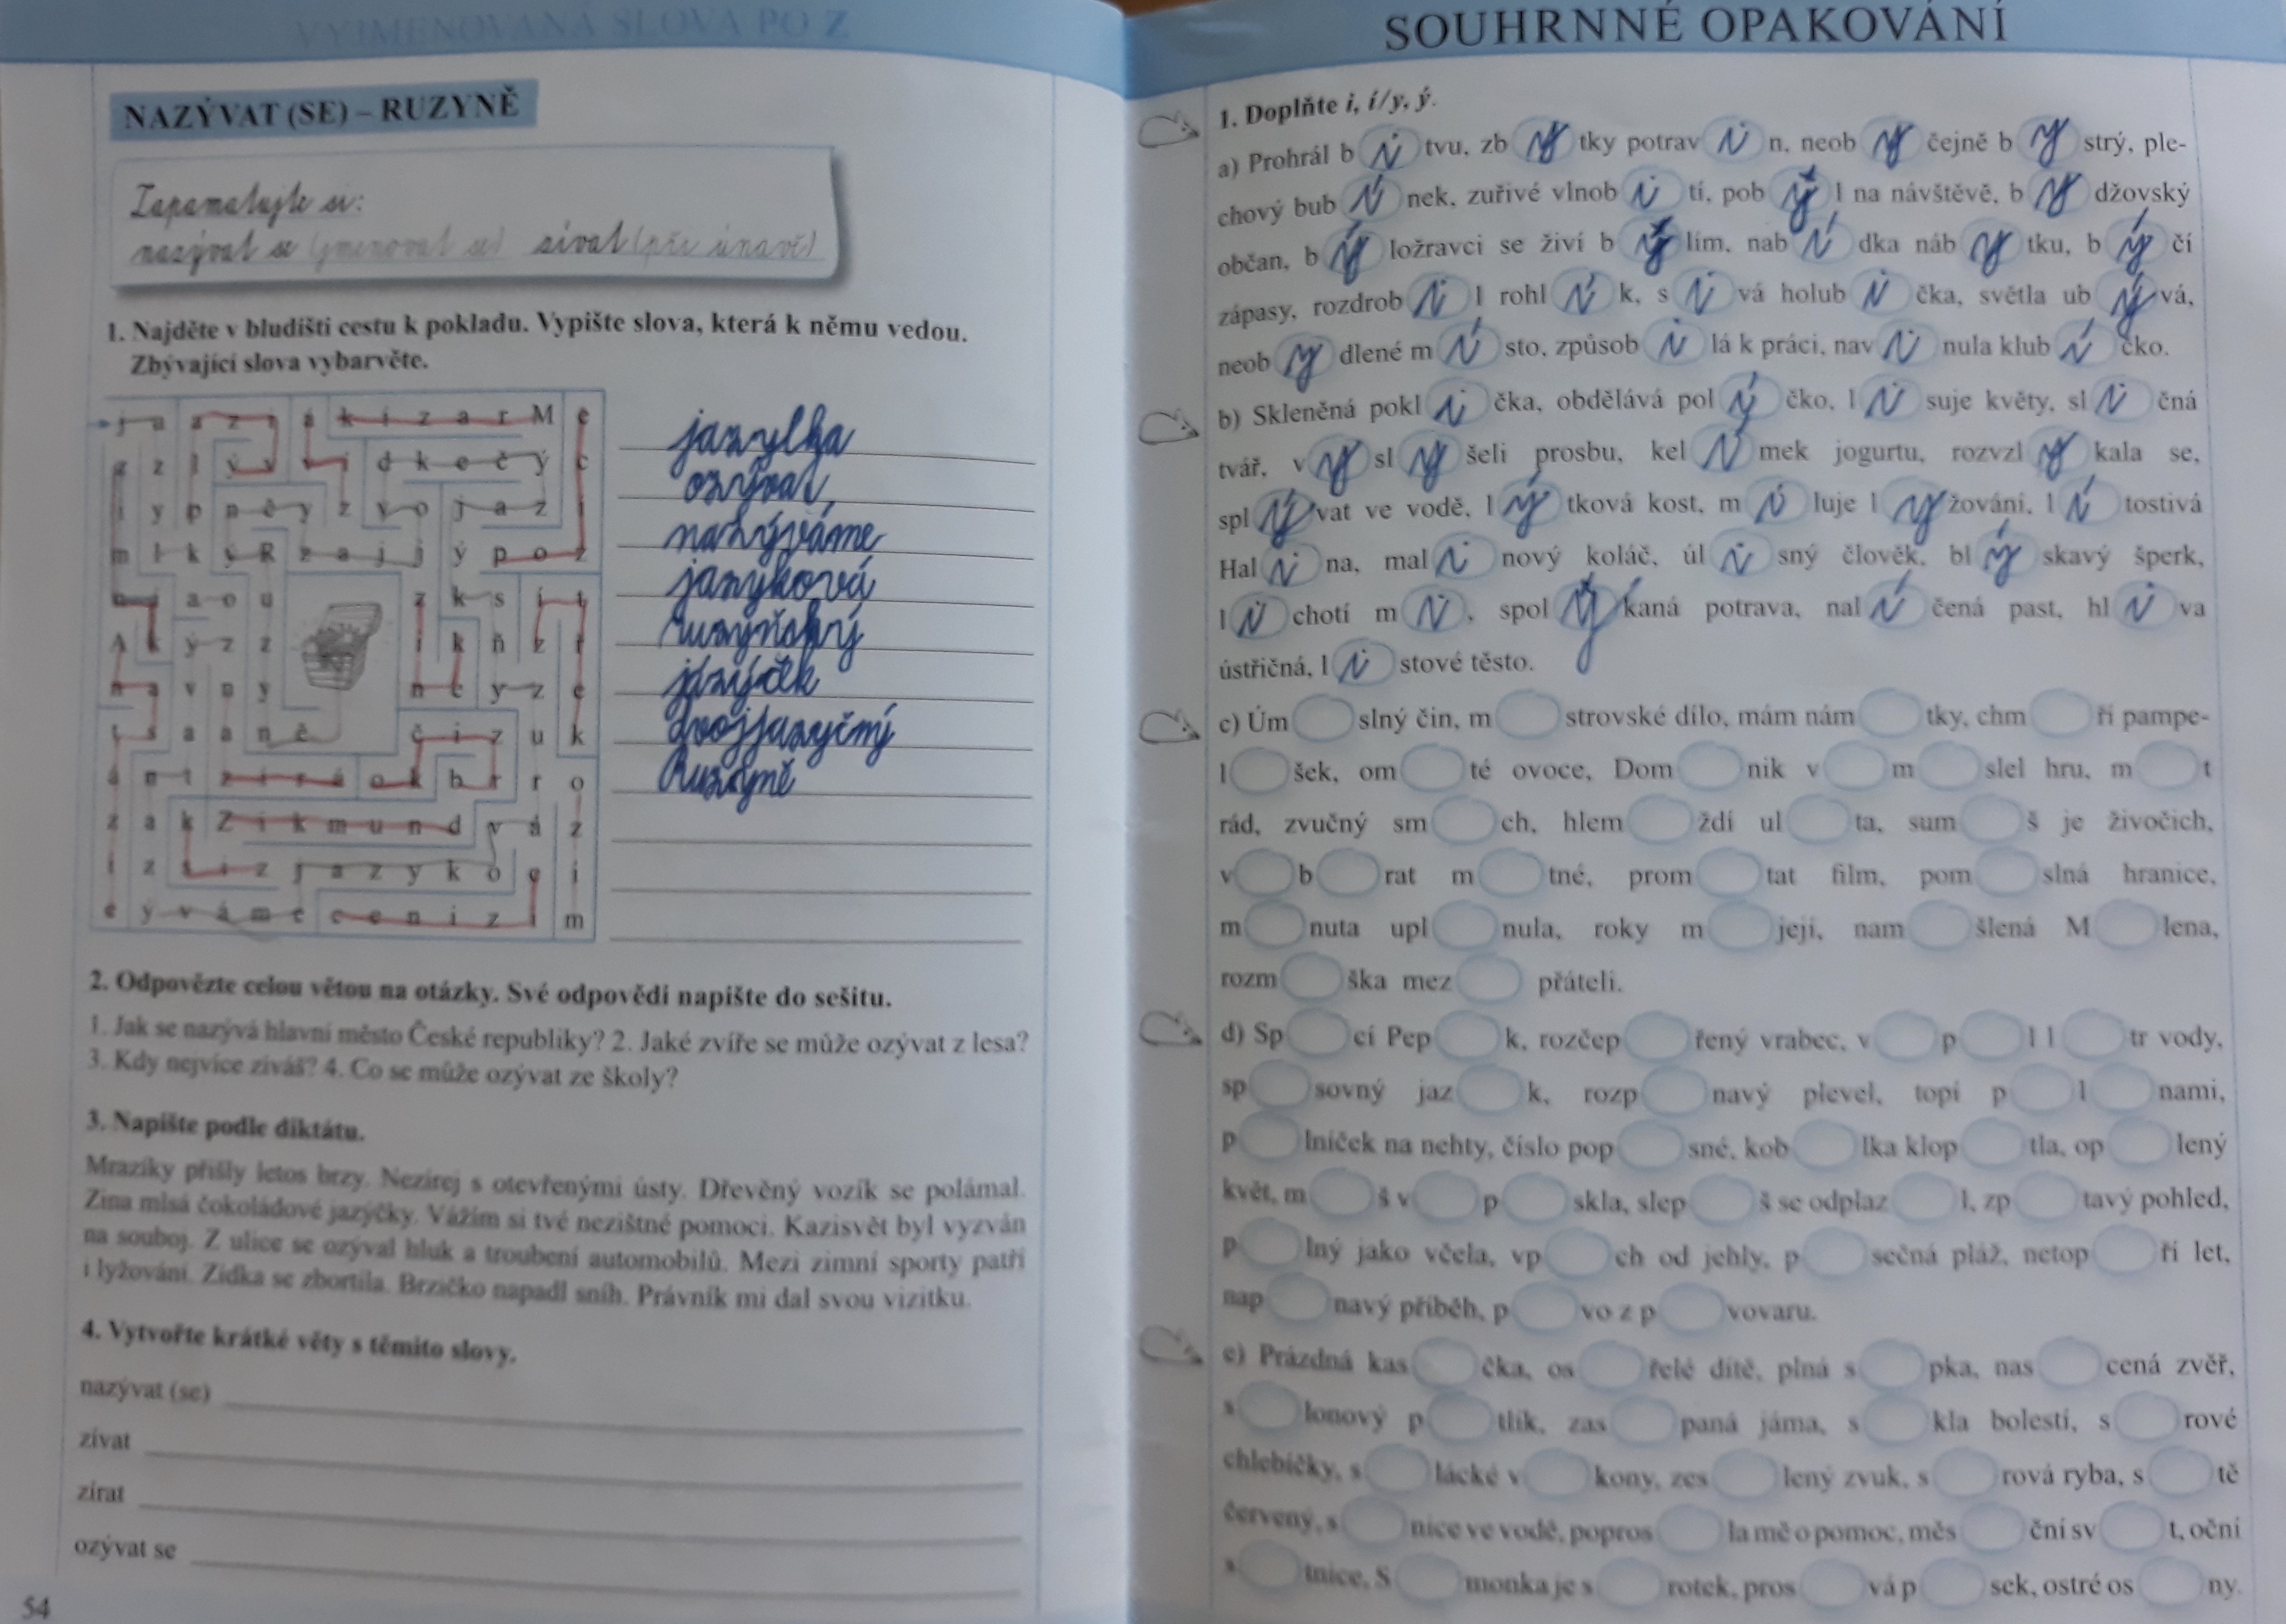 VYJMENOVANÁ SLOVA PO Z
NAZÝVAT (SE) – RUZYNĚ
Zapamatujte si:
nazývat se (jmenovat se) zívat (při únavě)
1. Najděte v bludišti cestu k pokladu. Vypište slova, která k němu vedou.
Zbývající slova vybarvěte.
jazylka
ozývat,
nazýváme
jazyková
ruzyňský
jazýček
dvojjazyčný
Ruzyně
2. Odpovězte celou větou na otázky. Své odpovědi napište do sešitu.
1. Jak se nazývá hlavní město České republiky? 2. Jaké zvíře se může ozývat z lesa?
3. Kdy nejvíce zíváš? 4. Co se může ozývat ze školy?
3. Napište podle diktátu.
Mrazíky přišly letos brzy. Nezírej s otevřenými ústy. Dřevěný vozík se polámal.
Zina mlsá čokoládové jazýčky. Vážím si tvé nezištné pomoci. Kazisvět byl vyzván
na souboj. Z ulice se ozýval hluk a troubení automobilů. Mezi zimní sporty patří
i lyžování. Zídka se zbortila. Brzičko napadl sníh. Právník mi dal svou vizitku.
4. Vytvořte krátké věty s těmito slovy.
nazývat (se)
zívat
zírat
ozývat se
54
SOUHRNNÉ OPAKOVÁNÍ
1. Doplňte i, í/y, ý.
a) Prohrál b i tvu, zb y tky potrav i n, neob y čejně b y strý, ple-
chový bub í nek, zuřivé vlnob i tí, pob ý l na návštěvě, b y džovský
občan, b ý ložravci se živí b ý lím, nab í dka náb y tku, b ý čí
zápasy, rozdrob i l rohl í k, s i vá holub i čka, světla ub ý vá,
neob y dlené m í sto, způsob i lá k práci, nav i nula klub í čko.
b) Skleněná pokl i čka, obdělává pol ý čko, l i suje květy, sl i čná
tvář, v y sl y šeli prosbu, kel í mek jogurtu, rozvzl y kala se,
spl ý vat ve vodě, l ý tková kost, m i luje l y žování, l í tostivá
Hal i na, mal i nový koláč, úl i sný člověk, bl ý skavý šperk,
l i chotí m i , spol y kaná potrava, nal í čená past, hl i va
ústřičná, l i stové těsto.
c) Úm slný čin, m strovské dílo, mám nám tky, chm ří pampe-
l šek, om té ovoce, Dom nik v m slel hru, m t
rád, zvučný sm ch, hlem ždí ul ta, sum š je živočich,
v b rat m tné, prom tat film, pom slná hranice,
m nuta upl nula, roky m její, nam šlená M lena,
rozm ška mez přáteli.
d) Sp cí Pep k, rozčep řený vrabec, v p l l tr vody,
sp sovný jaz k, rozp navý plevel, topí p l nami,
p lníček na nehty, číslo pop sné, kob lka klop tla, op lený
květ, m š v p skla, slep š se odplaz l, zp tavý pohled,
p lný jako včela, vp ch od jehly, p sečná pláž, netop ří let,
nap navý příběh, p vo z p vovaru.
e) Prázdná kas čka, os řelé dítě, plná s pka, nas cená zvěř,
s lonový p tlík, zas paná jáma, s kla bolestí, s rové
chlebíčky, s lácké v kony, zes lený zvuk, s rová ryba, s tě
červený, s nice ve vodě, popros la mě o pomoc, měs ční sv t, oční
s tnice, S monka je s rotek, pros vá p sek, ostré os ny.